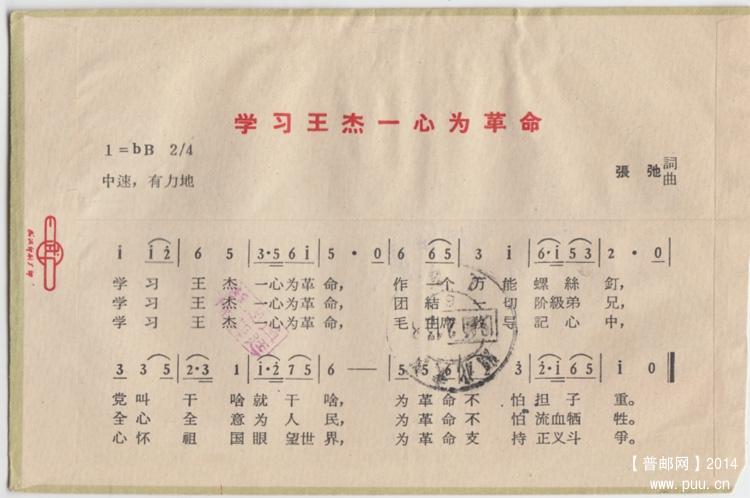 学习王杰一心为革命
1=bB 2/4
中速，有力地
張弛 詞曲
i i 2 | 6 5 | 3·5 6 i | 5 · 0 | 6 6 5 | 3 i | 6·i 5 3 | 2 · 0
学习王杰一心为革命，作一个万能螺絲釘，
学习王杰一心为革命，团結一切阶級弟兄，
学习王杰一心为革命，毛主席教导記心中，
3 3 5 | 2·3 1 | i·2 7 5 | 6 —— | 5 5 6 | 2 · 3 | 2·i 6 5 | i 0
党叫干啥就干啥，为革命不怕担子重。
全心全意为人民，为革命不怕流血牺牲。
心怀祖国眼望世界，为革命支持正义斗爭。
【普邮网】2014
www.puu.cn